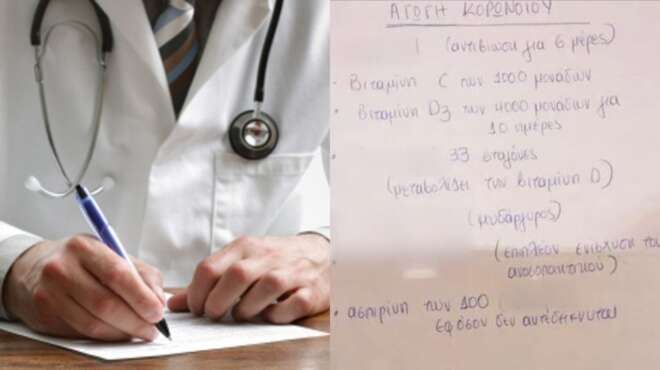 ΑΓΩΓΗ ΚΟΡΩΝΟΙΟΥ
(αντιβίωση για 6 μέρες)
· Βιταμίνη C των 1000 μονάδων
· Βιταμίνη D3 των 4000 μονάδων για
10 ημέρες
33 σταγόνες
(μεταβολίζει την βιταμίνη D)
(ψυδάργυρος)
(επιπλέον ενίσχυση του
ανοσοποιητικού)
· ασπιρίνη των 100
Εφόσον δεν αντεδίκνυται